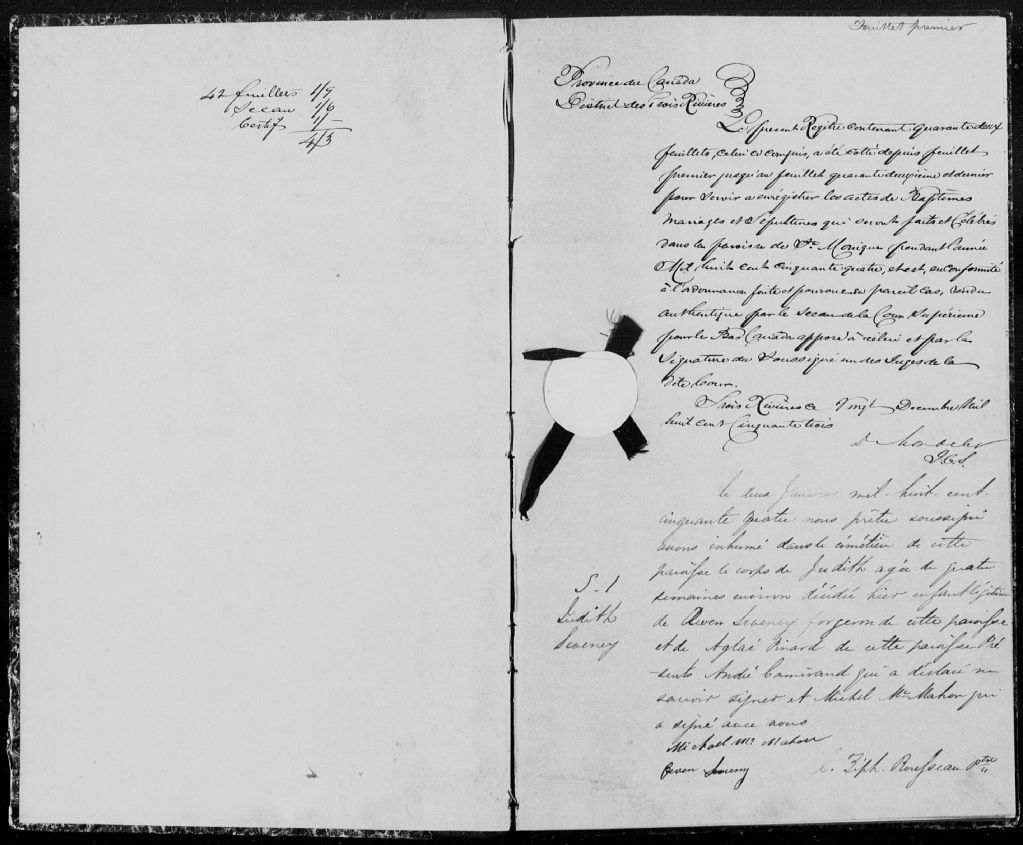 42 feuillets 1/9
Sceau 1/6
Certif 1/-
4/3
Feuillet premier
Province du Canada
District des Trois Rivières
Le présent Registre contenant quarante deux
feuillets, celui ci compris, a été cotté depuis feuillet
premier jusqu'au feuillet quarante deuxième et dernier
pour servir a enrégistrer les actes de Baptêmes
Mariages et Sépultures qui seront faits et Célébrés
dans la paroisse de Ste. Monique pendant l'année
Mil huit cent cinquante quatre, et est, en conformité
à l'ordonnance faite et pourvue en pareil cas, rendu
authentique par le Sceau de la Cour Supérieure
pour le Bas Canada apposé à icelui et par la
Signature du Soussigné un des Juges de la
dite Cour.
Trois Rivières ce Vingt Decembre Mil
huit cent Cinquante trois
J.C.S.
le deux Janvier mil-huit-cent-
cinquante quatre nous prêtre soussigné
avons inhumé dans le cimétière de cette
paroisse le corps de Judith agée de quatre
semaines environ décédée hier enfant légitime
de Owen Seveney forgeron de cette paroisse
et de Aglaé Pinard de cette paroisse Pré-
sents André Camirand qui a déclaré ne
savoir signer et Michel Mc Mahon qui
a signé avec nous
S. 1
Judith
Seveney
Michael Mc Mahon
Owen Seveny
C. Ziph. Rousseau Ptre